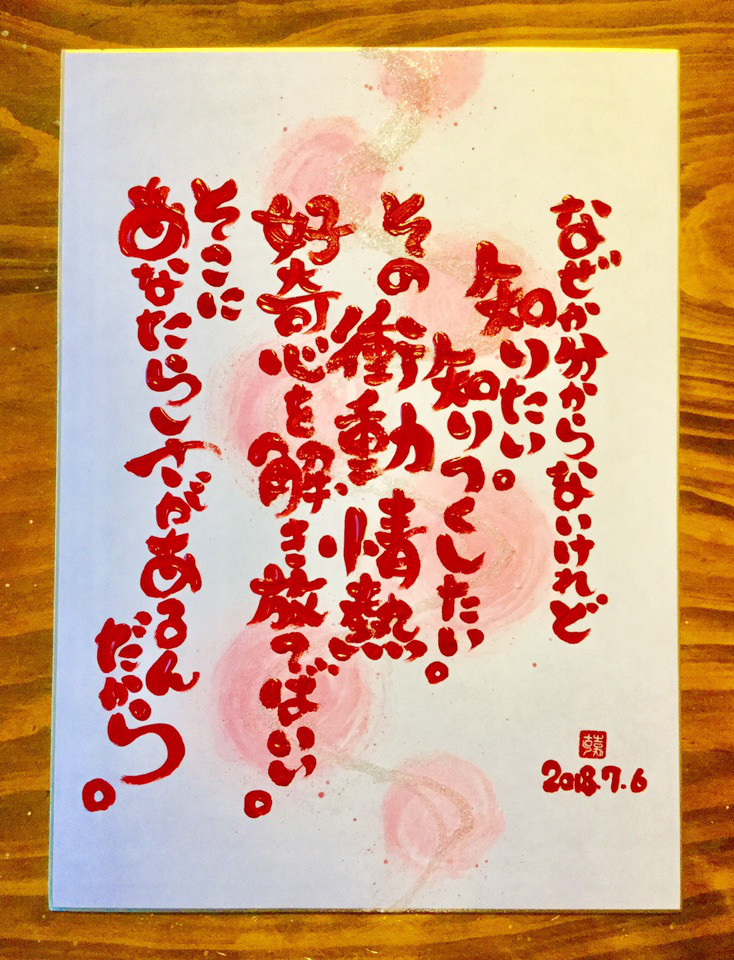 なぜか分からないけれど
知りたい。
知りつくしたい。
その衝動 情熱
好奇心を解き放てばいい。
そこに
あなたらしさがあるん
だから。
2018.7.6